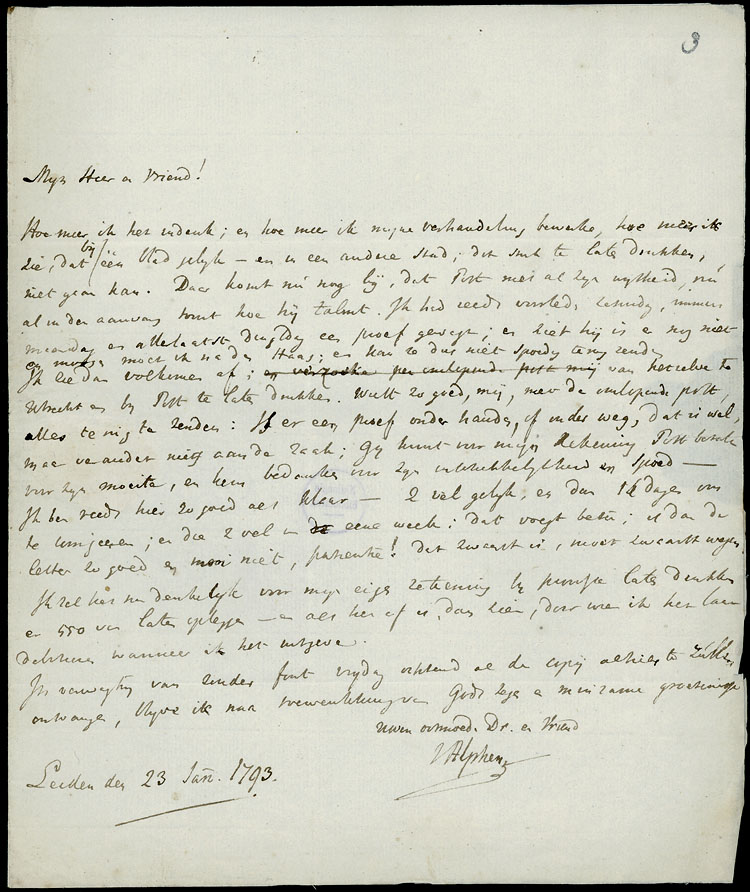 3
Myn Heer en Vriend!
Hoe meer ik het indenk; en hoe meer ik myne verhandeling bewerke, hoe meer ik
zie, dat bij één blad gelyk – en in een andere stad, dit stuk te laten drukken,
niet gaan kan. Daar komt nu nog bij, dat Post met al zyn vytheid, nu
al in den aanvang toont hoe hij talmt. Ik had reeds voorleden zaturdag, immers
maandag en allerlaatst dingsdag een proef gewagt; en ziet hij is er nog niet
en morgen moet ik na den Haag; en kan ze dus niet spoedig terug zenden
Ik zie dan volkomen af; en verzoeke per omlopende post mij van hetzelve te
Utrecht en by Post te laten drukken. Wilt zo goed, mij, met de omlopende post,
alles terug te zenden: Is er een proef onder handen, of onder weg, dat is wel,
maar verandert niets aan de zaak; Gy kunt voor mijn rekening Post betalen
voor zyn moeite, en hem bedanken voor zyn en spoed –
Ik ben reeds hier zo goed als klaar – 2 vel gelyk; en dan 14 dagen om
te corrigeeren; en die 2 vel in eene week: dat voegt beter; is dan de
letter zo goed en mooi niet, patientie! Dat zwaarst is, moet zwaarst wegen
Ik zal het nu denkelyk voor myn eigen rekening by laten drukken
en 550 van laten opleggen – en als het af is, dan zien, door wien ik het laat
debiteren wanneer ik het uitgeve.
In verwagting van zonder fout vrydag ochtend al de copij alhier te zullen
ontvangen, blyve ik na toewensching van Gods zegen en minzame groetenisse
uwen ootmoed. Dr. en Vriend
VAlphen
Leiden den 23 Jan. 1793.